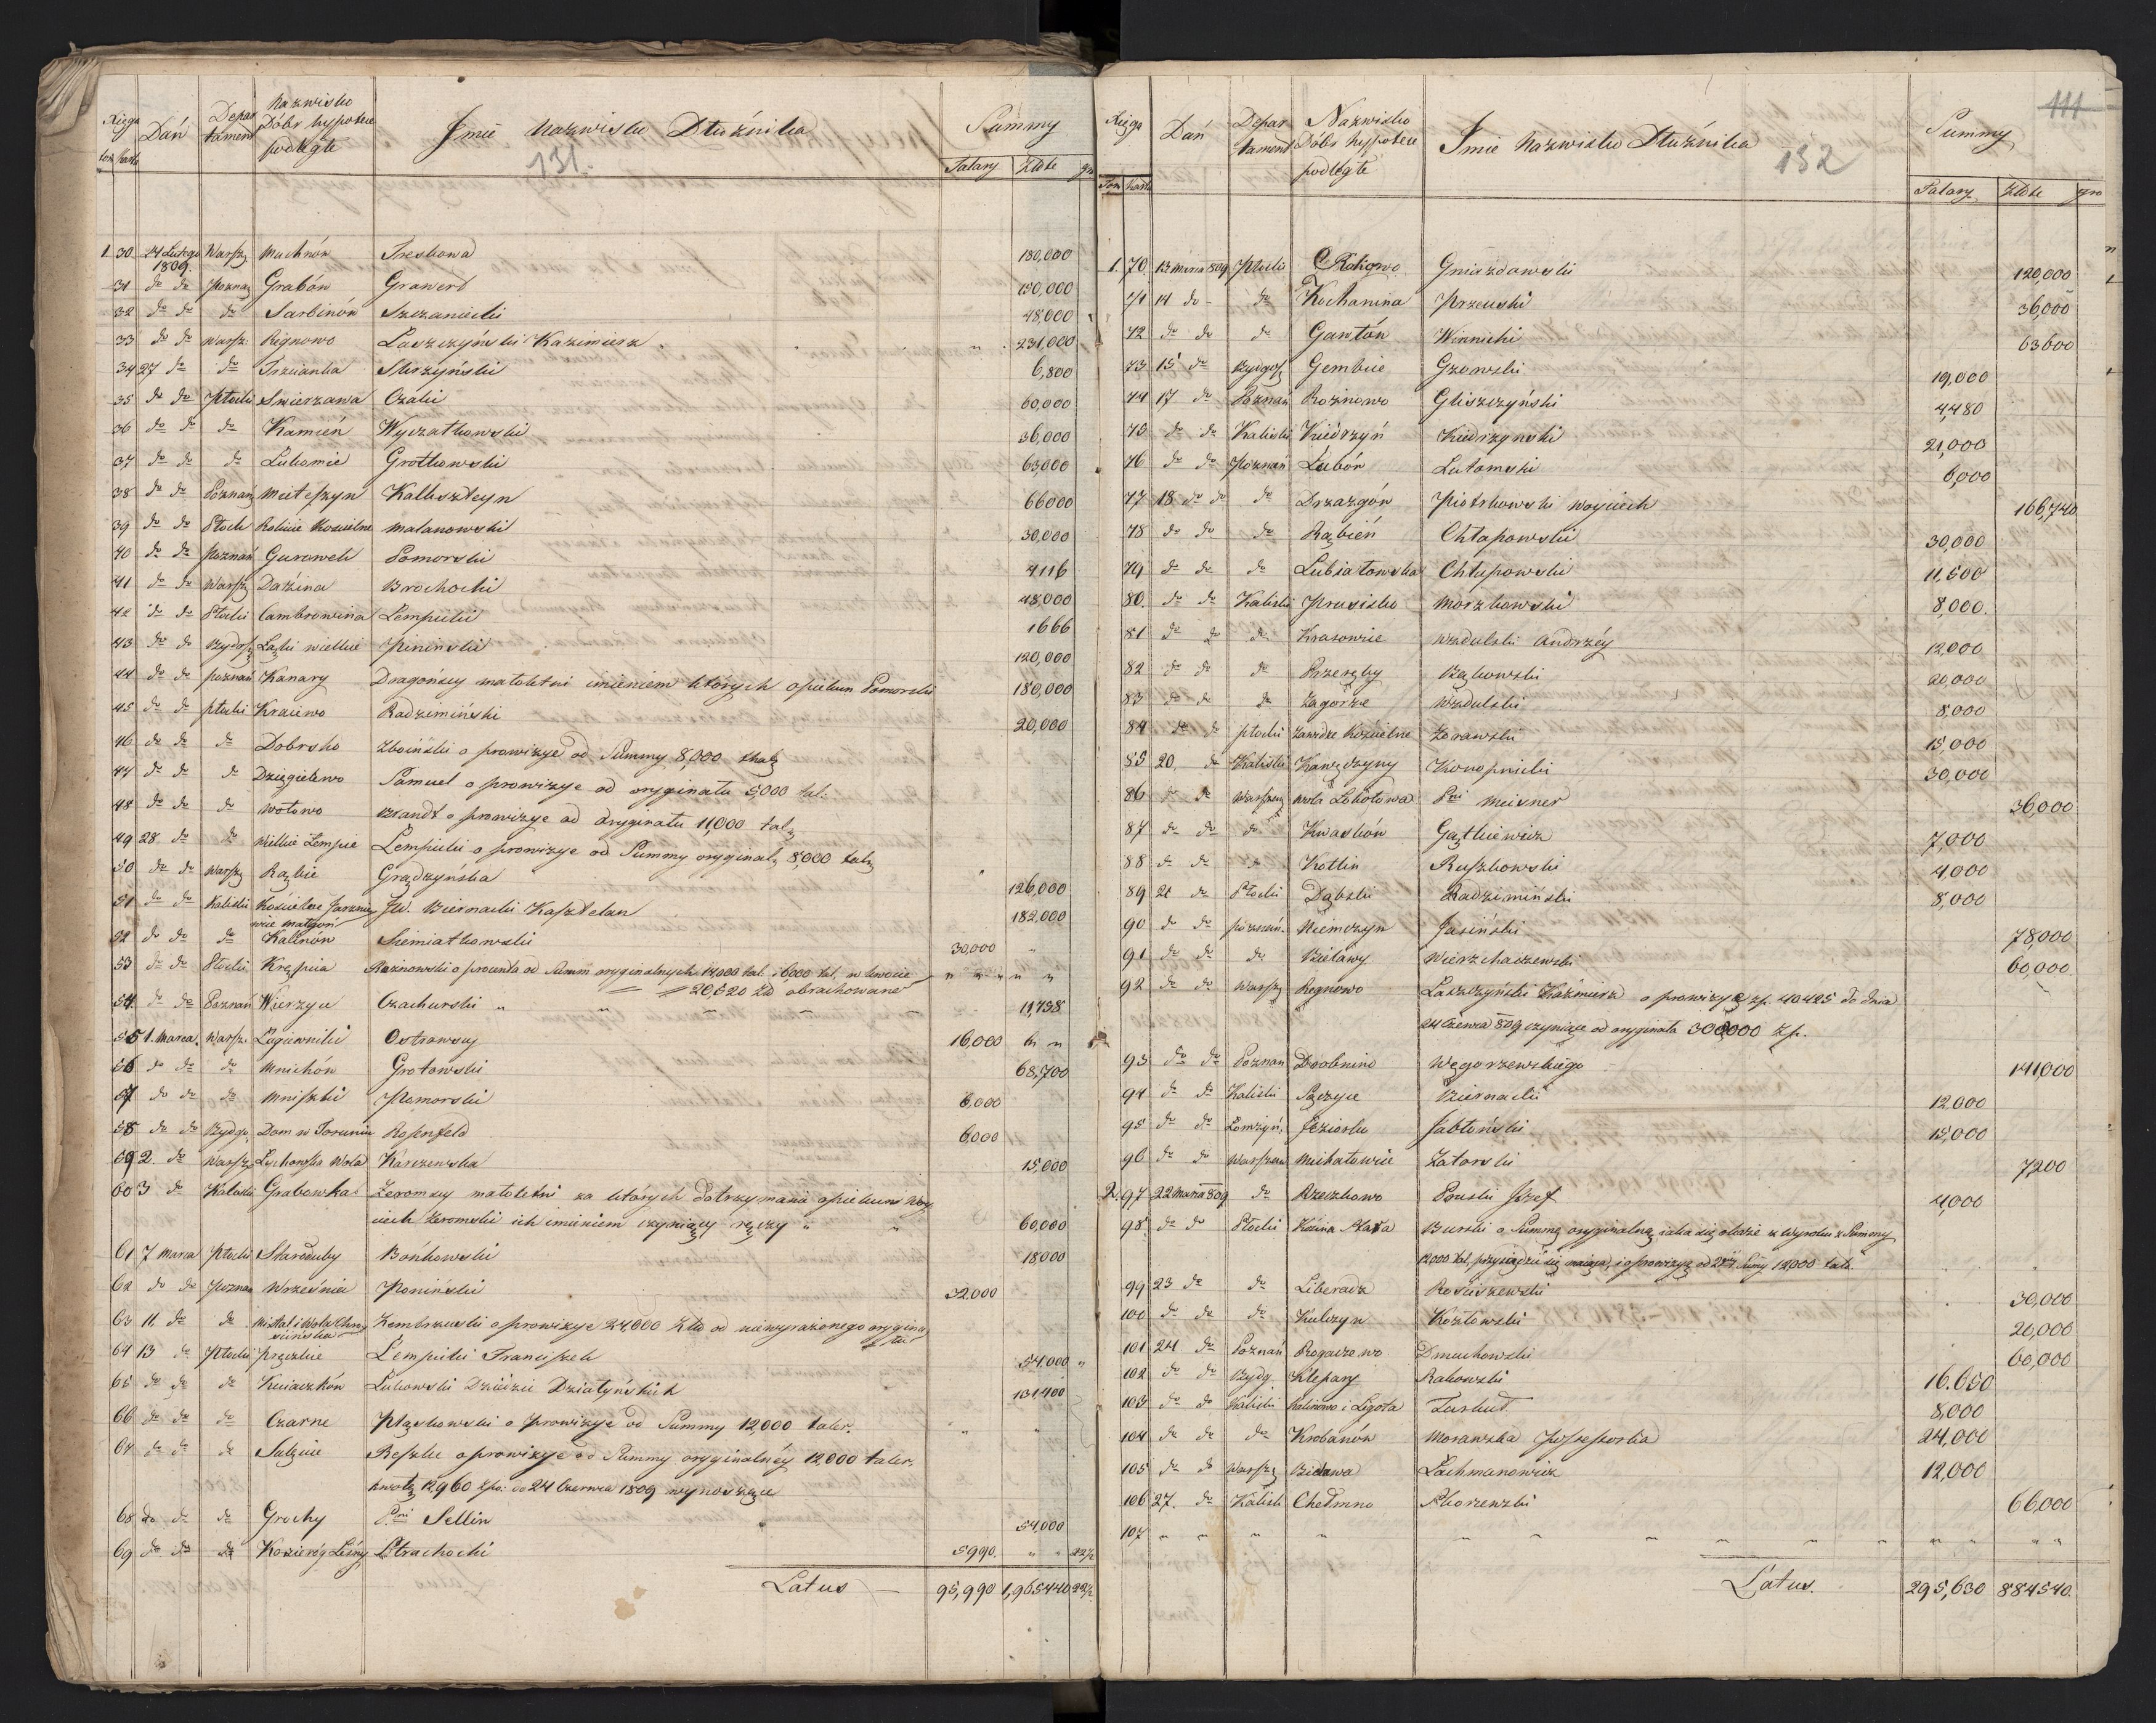 Księga Dań Depar Nazwisko Imie Nazwisko Dłużnika Summy
tament Dóbr hyppotece
podległe 131.
tom karta Talary Złote gr
1 30 24 Lutego Warsz Muchnów Treskowa 180,000
1809.
31 do do Poznań Grabów Grawert 150,000
32 do do do Sarbinów Szczaniecki 48,000
33 do do Warsz: Regnowo Łaszczyński Kazimierz 231,000
34 27 do do Trzcianka Skrzyński 6,800
35 do do Płocki Smierzawa Czaki 60,000
36 do do do Kamień Wyczałkowski 36,000
37 do do do Lukomie Grotkowski 63000
38 do do Poznań Kalkszteyn 66000
39 do do Płock Rokicie Kościelne Małanowski 30,000
40 do do Poznań Gurowek Pomorski 4116
41 do do Warsz Dażina Brochocki 48,000
42 do do Płocki Cambrowina Lempicki 1666
43 do do Bydgos Łaski wielkie Pininski 120,000
44 do do poznań Kanary Dragońscy małoletni imieniem których opiekun Pomorski 180,000
45 do do płocki Kraiewo Radzimiński 20,000
46 do do do Dobrsko Zboiński o prowizye od Summy 8,000 thal
47 do do do Dzięgielewo Samuel o prowizye od oryginału 5,000 tal.
48 do do do Wołowo Brandt o prowizye od oryginału 11,000 tal
49 28. do do Wilkie Lempie Lempicki o prowizye od Summy oryginal 8,000 tal
50 do do Warsz Rąbie Grądzyńska 126,000
51 do do Kaliski Kościelec JW. Biernacki Kasztelan 182,000
52 do do do Kalinów Siemiatkowski 30,000 "
53 do do Płocki Krępica Rożnowski o procenta od Summ oryginalnych 14000 tal. i 6,000 tal. w kwocie
20,520 Zł obrachowane
54. do do Poznań Wierzyce Czachurski 11,738
55 1. Marca. Warsz. Łagiewniki Ostrowscy 16,000
56 do do do Mnichów Grotowski 68,700
57 do do do Mniszki Pomorski 6,000
58 do do Bydgo. Dom w Toruniu Rosenfeld 6000
59 2. do Warsz Łychowska Wola Karczewska 15,000
60 3 do Kaliski Grabowka Żeromscy małoletni za których dotrzymania opiekun Woy
ciech Żeromski ich imieniem czyniący ręczy 60,000
61 7 Marca Płocki Staroduby Bońkowski 18,000
62 do do Poznań Wrześnica Poniński 32000
63 11. do do Kembrzuski o prowizye 24,000 Złto od niewyrażonego orygina
łu
64 13 do Płocki Przęczkie Lempicki Franciszek 54,000
65 do do do Kwiaczków Lukowski Dziedzic Działyńskich 131400
66 do do do Czarne Płąskowski o prowizye od Summy 12,000 taler.
67 do do do Sulęcice Reszke o prowizye od Summy oryginalnéy 12,000 taler.
kwotę 12,960 Zpo: do 24 Czerwca 1809 wynoszące
68 do do do Grochy Pni Sellin 54,000
69 do do do Kozieróg Leśny Strachocki 5990. " " 22½
Latus — 95,990 1,965440 22½
111
Księga Dań Depar Nazwisko Imie Nazwisko Dłużnika Summy
tament Dóbr hyppotece
podległe 132
Tom karta Talary Złote gro
1. 70. 13 Marca 809 Płocki Rokiowo Gniazdowski 120,000
71 14 do do Kochanina Przeuski 36,000
72 do do do Gawłów Winnicki 63600
73 15 do Bydgos Gembice Gzowski 19,000
74 17 do Poznań Rożnowo Gliszczyński 4,480
75 do do Kaliski Kiedrzyń Kiedrzynski 21,000
76 do do Poznań Lubón Lutomski 6,000
77 18 do do do Drzazgów Piotrkowski Woyciech 166,740
78 do do do Rąbień Chłapowski 30,000
79 do do do Lubiatowka Chłapowski 11,500
80. do do Kaliski Prusisko Morzkowski 8,000.
81 do do do Krasowice Wzdulski Andrzéy 12,000
82 do do do Przeręby Bąkowski 20,000
83 do do do Zagorze Wzdulski 8,000
84 do do płocki Zawidze Kościelne Żorawski 15,000
85 20. do Kaliski Kawęczyny Konopnicki 30,000
86 do do Warszaw Wola Łokotowa Pni Meisner 36,000
87 do do do Kwasków Gątkiewicz 7,000
88 do do do Kotlin Ruszkowski 4000
89 21 do Płocki Dąbski Radzimiński 8,000
90 do do poznań. Niemczyn Jasiński 78,000
91 do do do Bielawy Wierzchaczewski 60,000
92 do do Warsz Regnowo Łaszczyński Kazimierz o prowizyę zp. 40425 do dnia
24 Czerwca 809 czyniące od oryginału 300000 Zp.
93 do do Poznań Drobnino Węgorzewskiego 141,000
94 do do Kaliski Pęczyce Biernacki 12,000
95 do do Łomżyń. Jeziorko Jabłoński 15,000
96 do do Warszaw Michałowice Zatorski 7200
2. 97 22 Marca 809 do Rzeczkowo Pruski Józef 4,000
98. do do Płocki Burski o Summę oryginalną iaka się okaże z wypadku z Summy
12000 tal. przysądzić się maiące, i o prowizyę od teyże Sumy 12,000 tal.
99 23 do do Liberadz Rościszewski 30,000
100 do do do Kulczyn Kozłowski 20,000
101 24 do Poznań Rogaczewo Dmuchowski 60,000
102 do do Bydg. Klepary Rakowski 16.650
103 do do Kaliski Kalinowo i Ligota Taskut 8,000
104 do do do Krobanów Morawska Possessorka 24,000
105 do do Warsz Bielawa Lachmanowicz 12,000
106 27. do Kalisk Chełmno Skorzewski 66,000
107 " " " " " " " " " "
Latus. 295,630 884540.